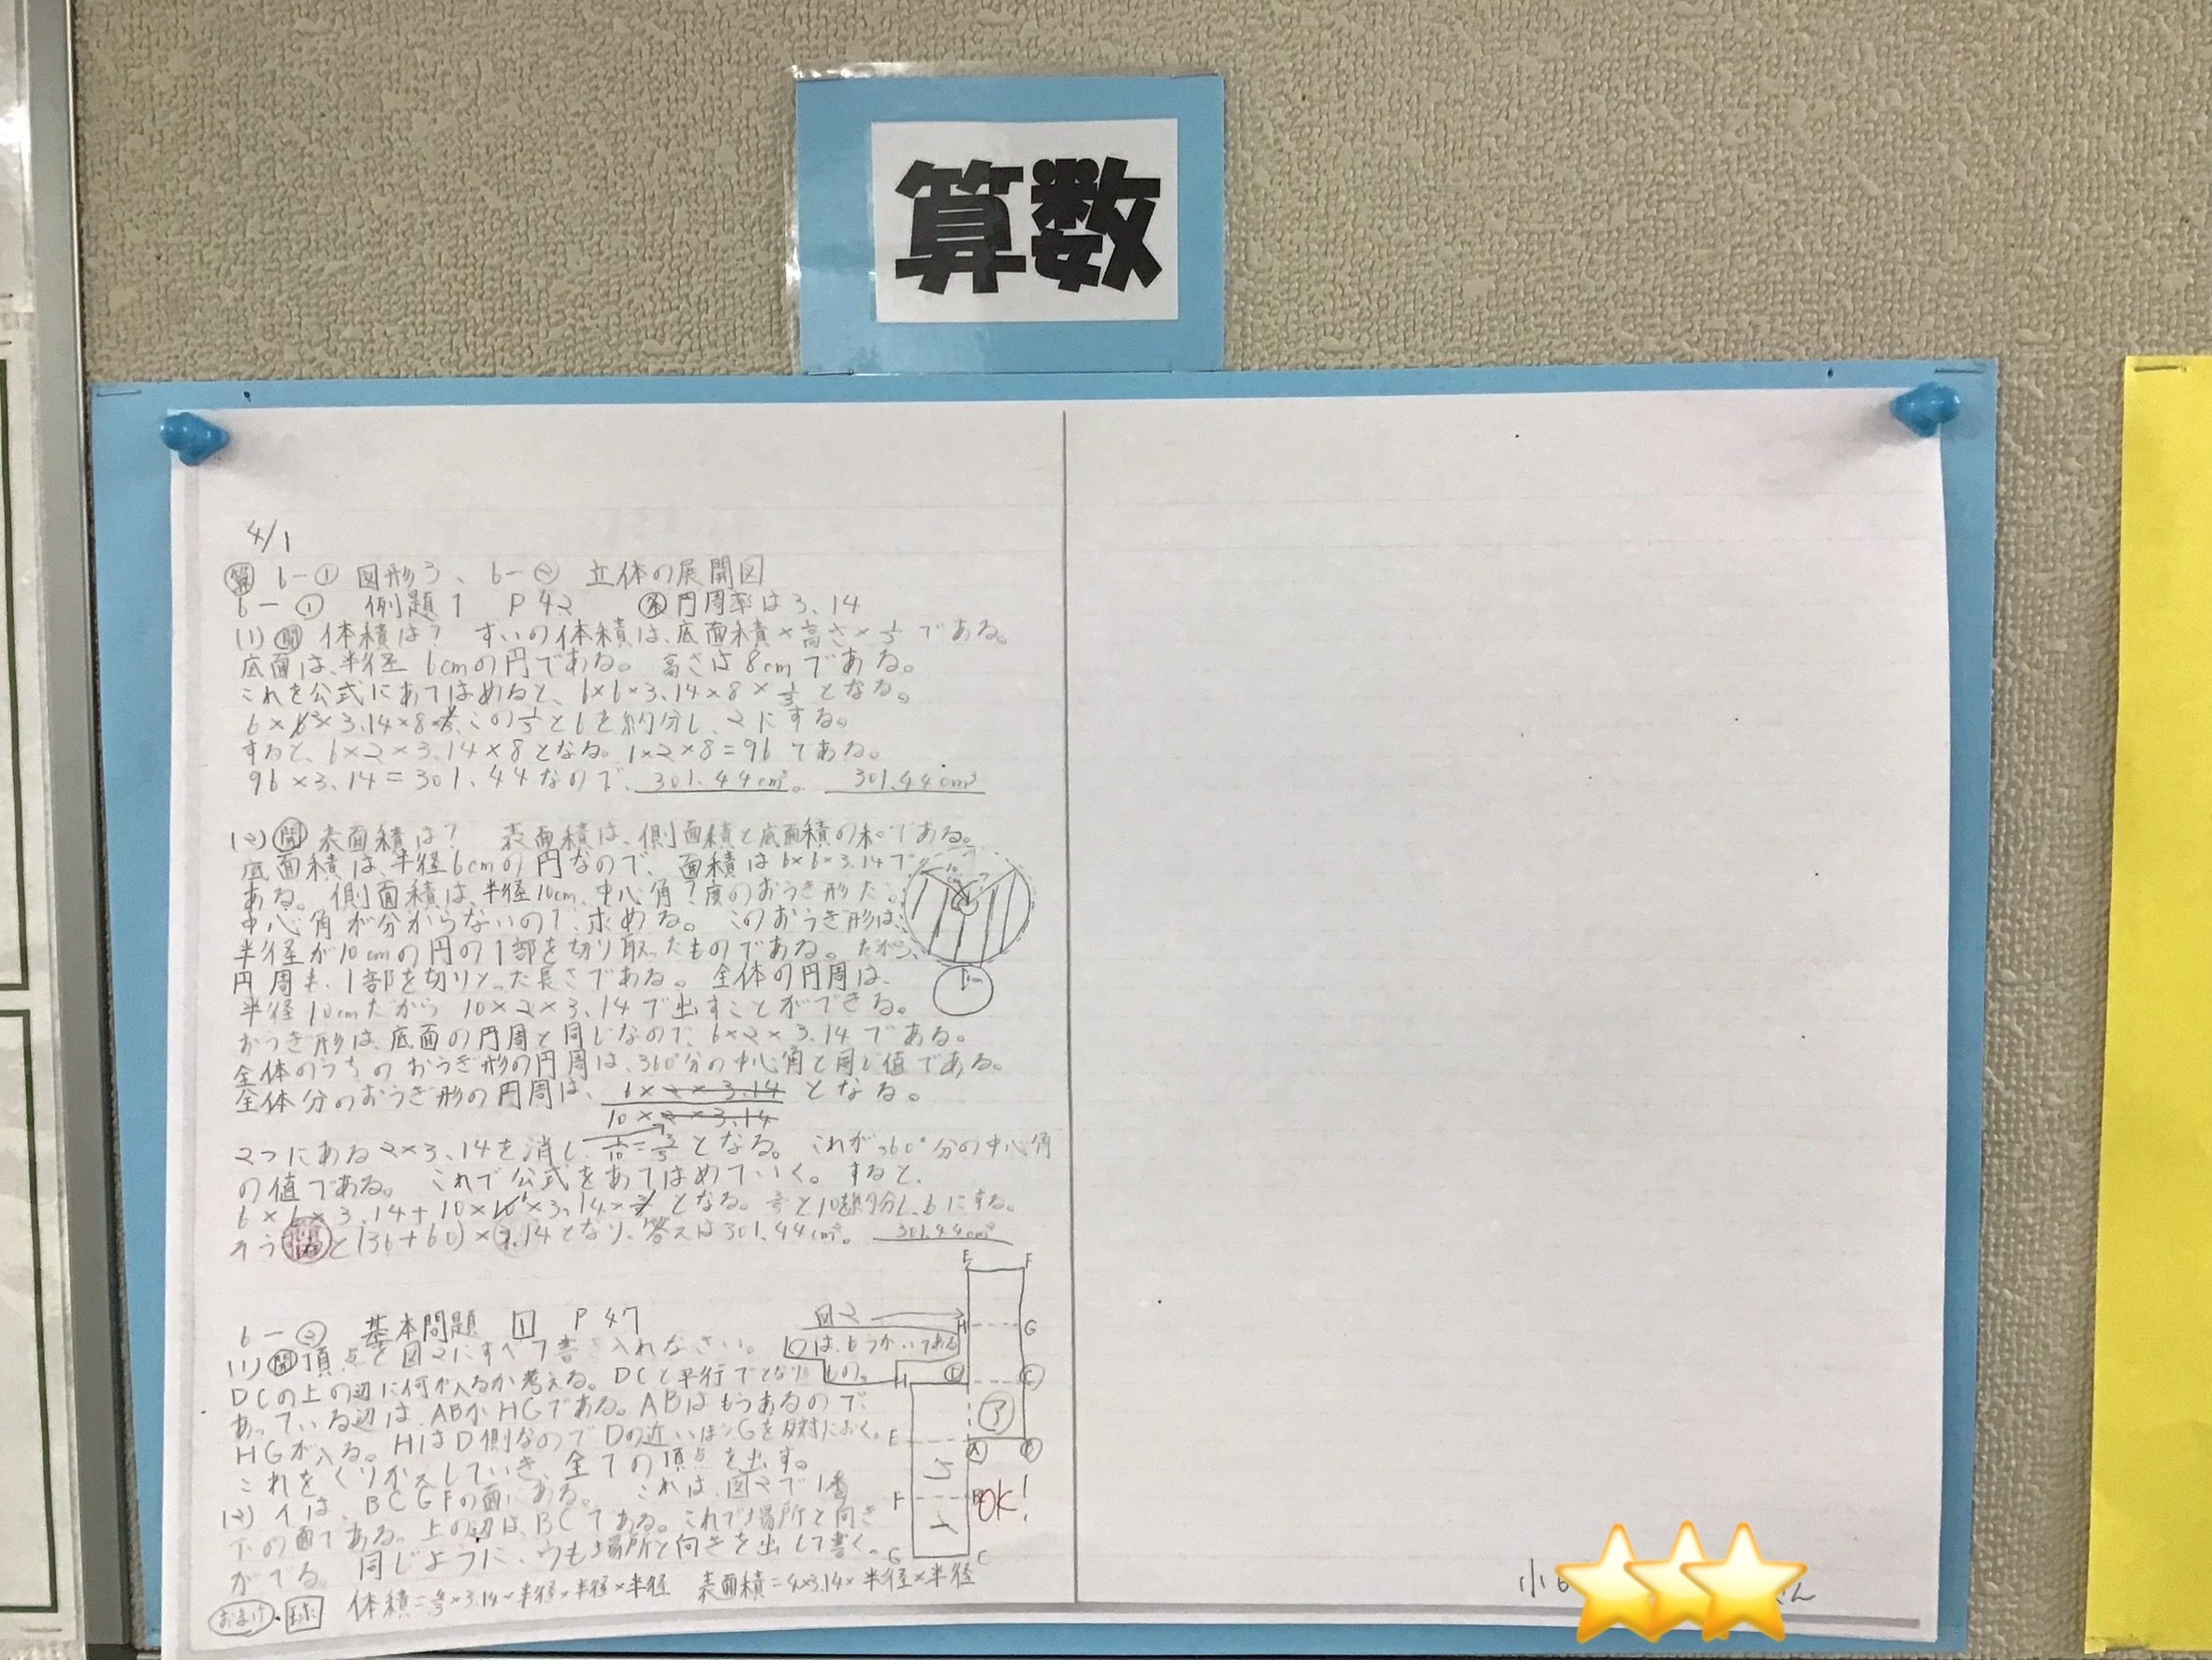 算数
4/1
算 6-① 図形3、6-② 立体の展開図
6-① 例題1 P42 円周率は3.14
(1) 問 体積は? すいの体積は、底面積×高さ×1/3である。
底面は、半径6cmの円である。高さは8cmである。
これを公式にあてはめると、6×6×3.14×8×1/3となる。
6×6×3.14×8× この1/3と6を約分し、2にする。
すると、6×2×3.14×8となる。 ×2×8=96である。
96×3.14=301.44なので、301.44cm³。 301.44cm³
(2) 問 表面積は? 表面積は、側面積と底面積の和である。
底面積は、半径6cmの円なので、面積は6×6×3.14で
ある。側面積は、半径10cm、中心角?度のおうぎ形だ。
中心角が分からないので、求める。このおうぎ形は、
半径が10cmの円の1部を切り取ったものである。だから、
円周も、1部を切りとった長さである。全体の円周は、
半径10cmだから10×2×3.14で出すことができる。
おうぎ形は、底面の円周と同じなので、6×2×3.14である。
全体のうちのおうぎ形の円周は、360°分の中心角と同じ値である。
全体分のおうぎ形の円周は、6×2×3.14 となる。
10×2×3.14
2つにある2×3.14を消し、6/10=3/5となる。これが360°分の中心角
の値である。これで公式をあてはめていく。すると、
6×6×3.14+10×10×3.14× となる。 と10を約分し、6にする。
と(36+60)×3.14となり、答えは301.44cm²。 301.44cm²
6-② 基本問題 1 P47
(1) 問 頂点を図2にすべて書き入れなさい。
図2
○は、もうかいてある
もの。
DCの上の辺に何が入るか考える。DCと平行でとなり
あっている辺は、ABかHGである。ABはもうあるので、
HGが入る。HはD側なのでDの近いほうGを反対におく。
これをくりかえしていき、全ての頂点を出す。
(2) イは、BCGFの面にある。これは、図2で1番
下の面である。上の辺は、BCである。これで場所と向き
がでる。同じように、ウも場所と向きを出して書く。
E F
H G
H D C
ア
E A B
ウ
F B
イ
G C
OK!
おまけ・球 体積=4/3×3.14×半径×半径×半径 表面積=4×3.14×半径×半径
小